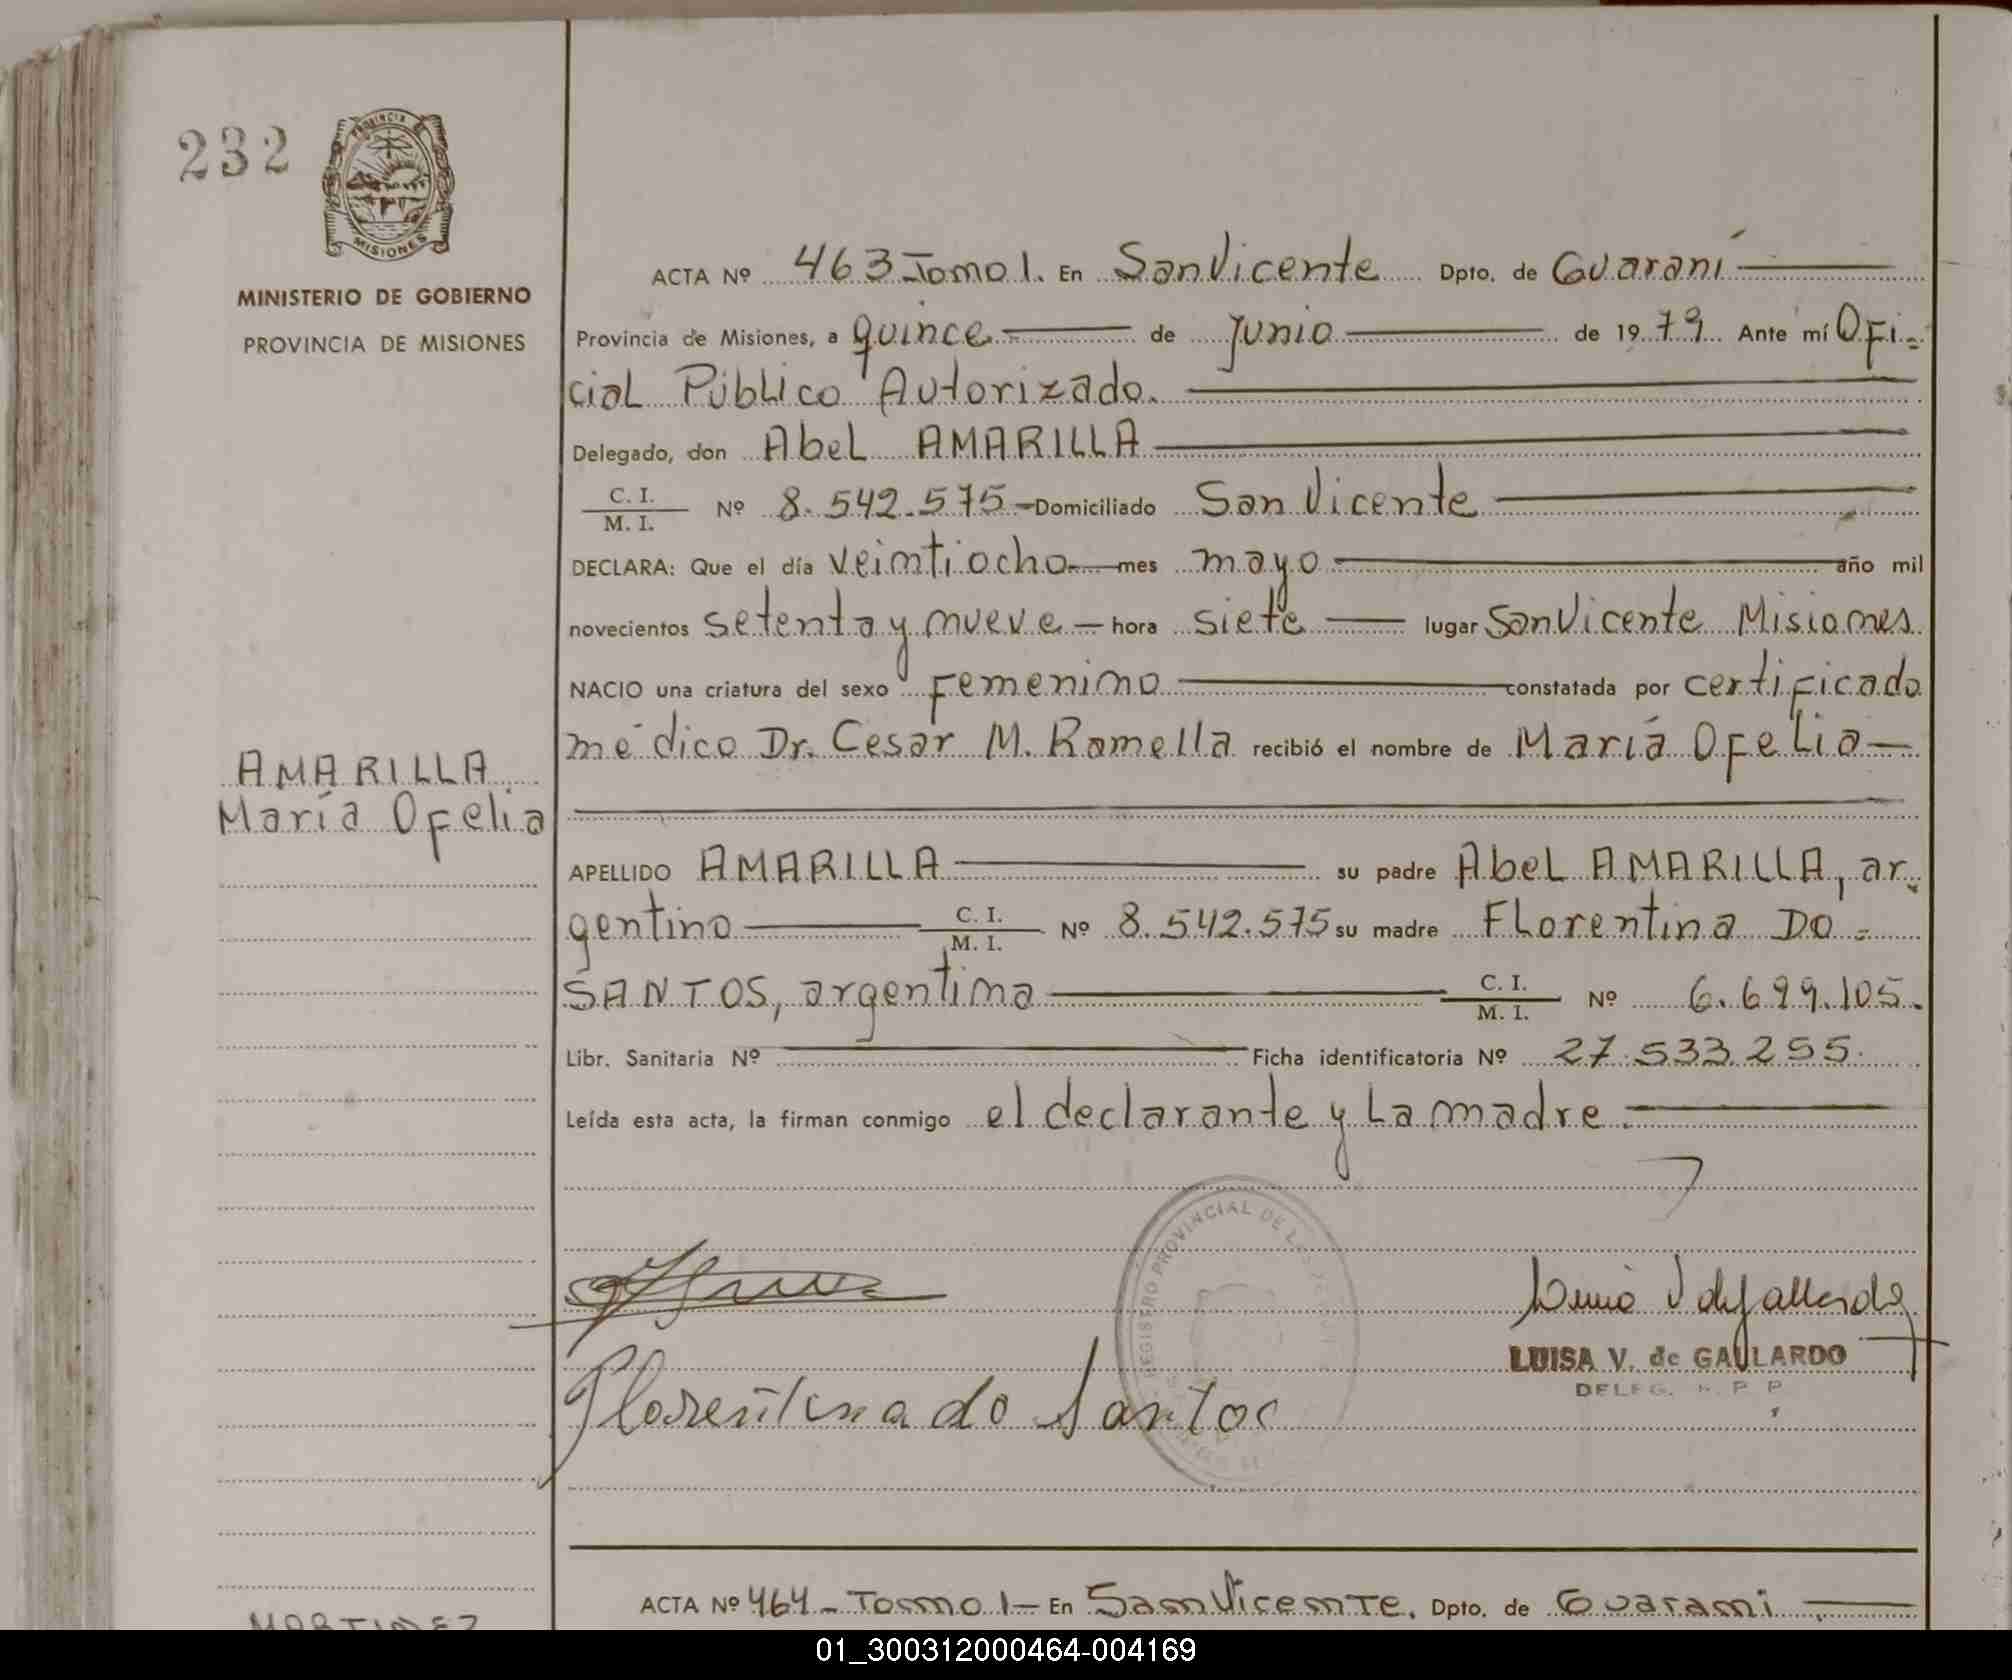 232
PROVINCIA DE
MISIONES
MINISTERIO DE GOBIERNO
PROVINCIA DE MISIONES
AMARILLA
María Ofelia
ACTA Nº 463 Tomo 1. En San Vicente Dpto. de Guaraní
Provincia de Misiones, a quince de Junio de 1979. Ante mí Ofi=
cial Público Autorizado.
Delegado, don Abel AMARILLA
C. I.
M. I. Nº 8.542.575 Domiciliado San Vicente
DECLARA: Que el día veintiocho mes mayo año mil
novecientos setenta y nueve hora siete lugar San Vicente Misiones
NACIO una criatura del sexo Femenino constatada por certificado
médico Dr. Cesar M. Ramella recibió el nombre de María Ofelia
APELLIDO AMARILLA su padre Abel AMARILLA, ar=
gentino C. I.
M. I. Nº 8.542.575 su madre Florentina DO=
SANTOS, argentina C. I.
M. I. Nº 6.699.105.
Libr. Sanitaria Nº Ficha identificatoria Nº 27.533.255.
Leída esta acta, la firman conmigo el declarante y La madre.
REGISTRO PROVINCIAL DE LAS
Luisa V de Gallardo
LUISA V. de GALLARDO
DELEG. R. P. P.
Florentina do Santos
ACTA Nº 464 - Tomo 1 - En San Vicente. Dpto. de Guaraní
MARTINEZ
01_300312000464-004169